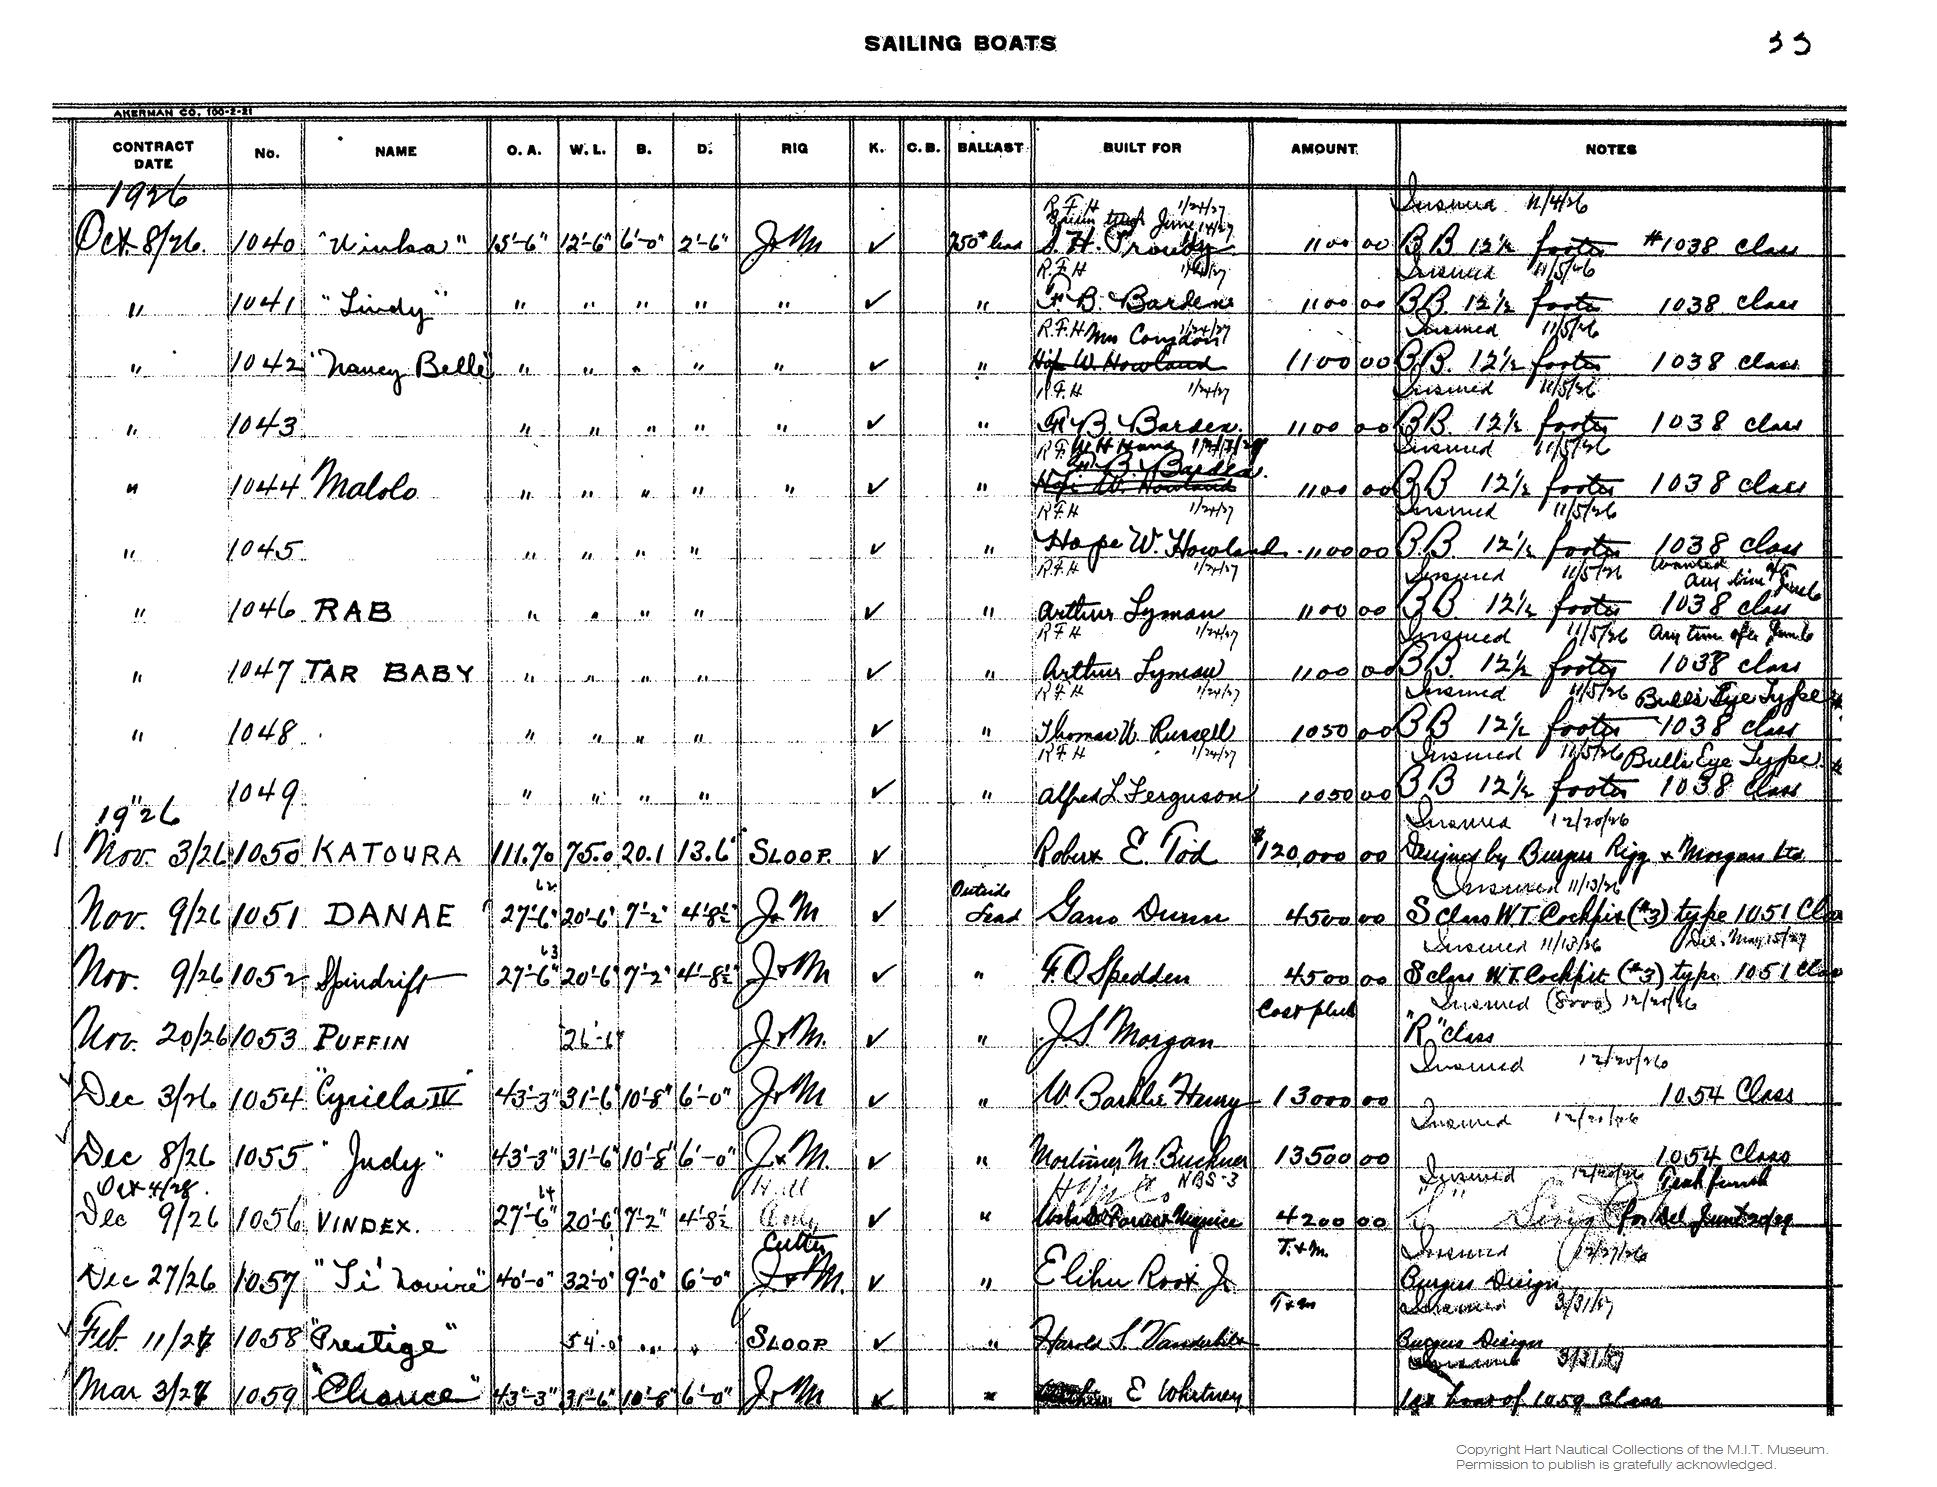 SAILING BOATS 33
AKERMAN CO. 100-2-21
CONTRACT DATE No. NAME O.A. W.L. B. D. RIG K. C.B. BALLAST BUILT FOR AMOUNT NOTES
1926
R.F.H 1/24/27 Insured 11/4/26
Oct 8/26. 1040 15'-6" 12'-6" 6'-0" 2'-6" J & M ✓ 750# lead 1100 00 B B 12½ footer #1038 class
R.F.H Insured 11/5/26
" 1041 "Lindy" " " " " " ✓ " F. B. Barden 1100 00 B B. 12½ footer 1038 class
R.F.H 1/24/27 Mrs Congdon Insured 11/5/26
" 1042 "Nancy Belle" " " " " " ✓ " Hope W. Howland 1100 00 B B. 12½ footer 1038 class
R.F.H 1/24/27 Insured 11/5/26
" 1043 " " " " " ✓ " F. B. Barden. 1100 00 B B. 12½ footer 1038 class
R.F. Insured 11/5/26
B. Barden.
" 1044 Malolo " " " " " ✓ " Hope W. Howland 1100 00 B B 12½ footer 1038 class
R.F.H 1/24/27 Insured 11/5/26
" 1045 " " " " ✓ " Hope W. Howland 1100 00 B B 12½ footer 1038 class
R.F.H 1/24/27 Insured 11/5/26 Wanted any time after June 6
" 1046 RAB " " " " ✓ " Arthur Lyman 1100 00 B B 12½ footer 1038 class
R.F.H 1/24/27 Insured 11/5/26 Any time after June 6
" 1047 TAR BABY " " " " ✓ " Arthur Lyman 1100 00 B B. 12½ footer 1038 class
R.F.H 1/24/27 Insured 11/5/26 Bulls Eye Type
" 1048 " " " " ✓ " Thomas W. Russell 1050 00 B B 12½ footer 1038 class
R.F.H 1/24/27 Insured 11/5/26 Bulls Eye Type
" 1049 " " " " ✓ " Alfred L Ferguson 1050 00 B B 12½ footer 1038 class
1926 Insured 12/20/26
Nov. 3/26 1050 KATOURA 111.70 75.0 20.1 13.6 SLOOP. ✓ Robert E. Tod $120,000 00 Designed by Burgess Rigg & Morgan Ltd
62 Outside Insured 11/13/26
Nov. 9/26 1051 DANAE 27'-6" 20'-6" 7'-2" 4'-8½" J & M ✓ Lead Gano Dunn 4500 00 S class W.T. Cockpit (#3) type 1051 Class
63 Insured 11/13/26 Del. May 15/27
Nov. 9/26 1052 Spindrift 27'-6" 20'-6" 7'-2" 4'-8½" J & M ✓ " F. O Spedden 4500 00 S class W.T. Cockpit (#3) type 1051 Class
Cost plus Insured (8000) 12/20/26
Nov. 20/26 1053 PUFFIN 26'-6" J & M. ✓ " J S Morgan "R" class
Insured 12/20/26
Dec 3/26 1054 "Cyrilla IV" 43'-3" 31'-6" 10'-8" 6'-0" J & M ✓ " W. Barklie Henry 13000 00 1054 Class
Insured 12/20/26
Dec 8/26 1055 "Judy" 43'-3" 31'-6" 10'-8" 6'-0" J & M. ✓ " Mortimer N. Buckner 13500 00 1054 Class
Oct 4/28. 64 Hull H M Co NBS-3 Insured 12/20/26 Teak finish
Dec 9/26 1056 VINDEX. 27'-6" 20'-6" 7'-2" 4'-8½ only ✓ " 4200 00 "S"
Cutter T. & M. Insured 12/27/26
Dec 27/26 1057 40'-0" 32'-0" 9'-0" 6'-0" J & M. ✓ " Elihu Root Jr Burgess Design
T & M Insured 3/31/27
Feb. 11/27 1058 "Prestige" 54'-0 " " SLOOP ✓ " Harold S. Vanderbilt Burgess Design
Insured 3/31/27
Mar 3/27 1059 "Chance" 43'-3" 31'-6" 10'-8" 6'-0" J & M ✓ " E Whitney 1st boat of 1059 Class
Copyright Hart Nautical Collections of the M.I.T. Museum.
Permission to publish is gratefully acknowledged.